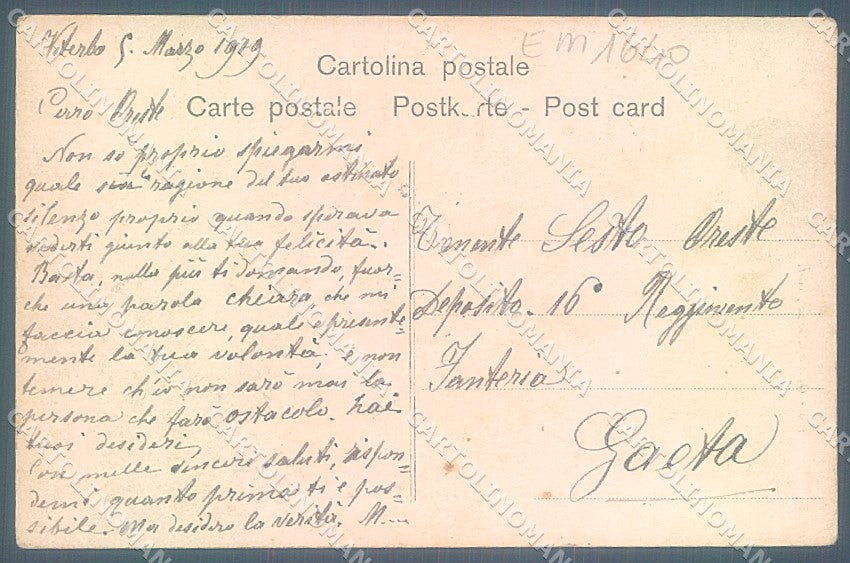 Viterbo 5. Marzo 1919
EM 1640
Cartolina postale
Carte postale Postkarte - Post card
Caro Oreste
Non so proprio spiegarmi
quale sia la ragione del tuo ostinato
silenzo proprio quando sperava
vederti giunto alla tua felicità.
Basta, nulla più ti domando, fuor-
che una parola chiara, che mi
faccia conoscere quale è presente-
mente la tua volontà, e non
temere ch'io non sarò mai la
persona che farò ostacolo hai
tuoi desideri,
Con mille sincere saluti, rispon-
demi quanto prima ti è pos-
sibile. Ma desidero la verità. M...
Tenente Sesto Oreste
Deposito. 16° Reggimento
Fanteria
Gaeta
CARTOLINOMANIA